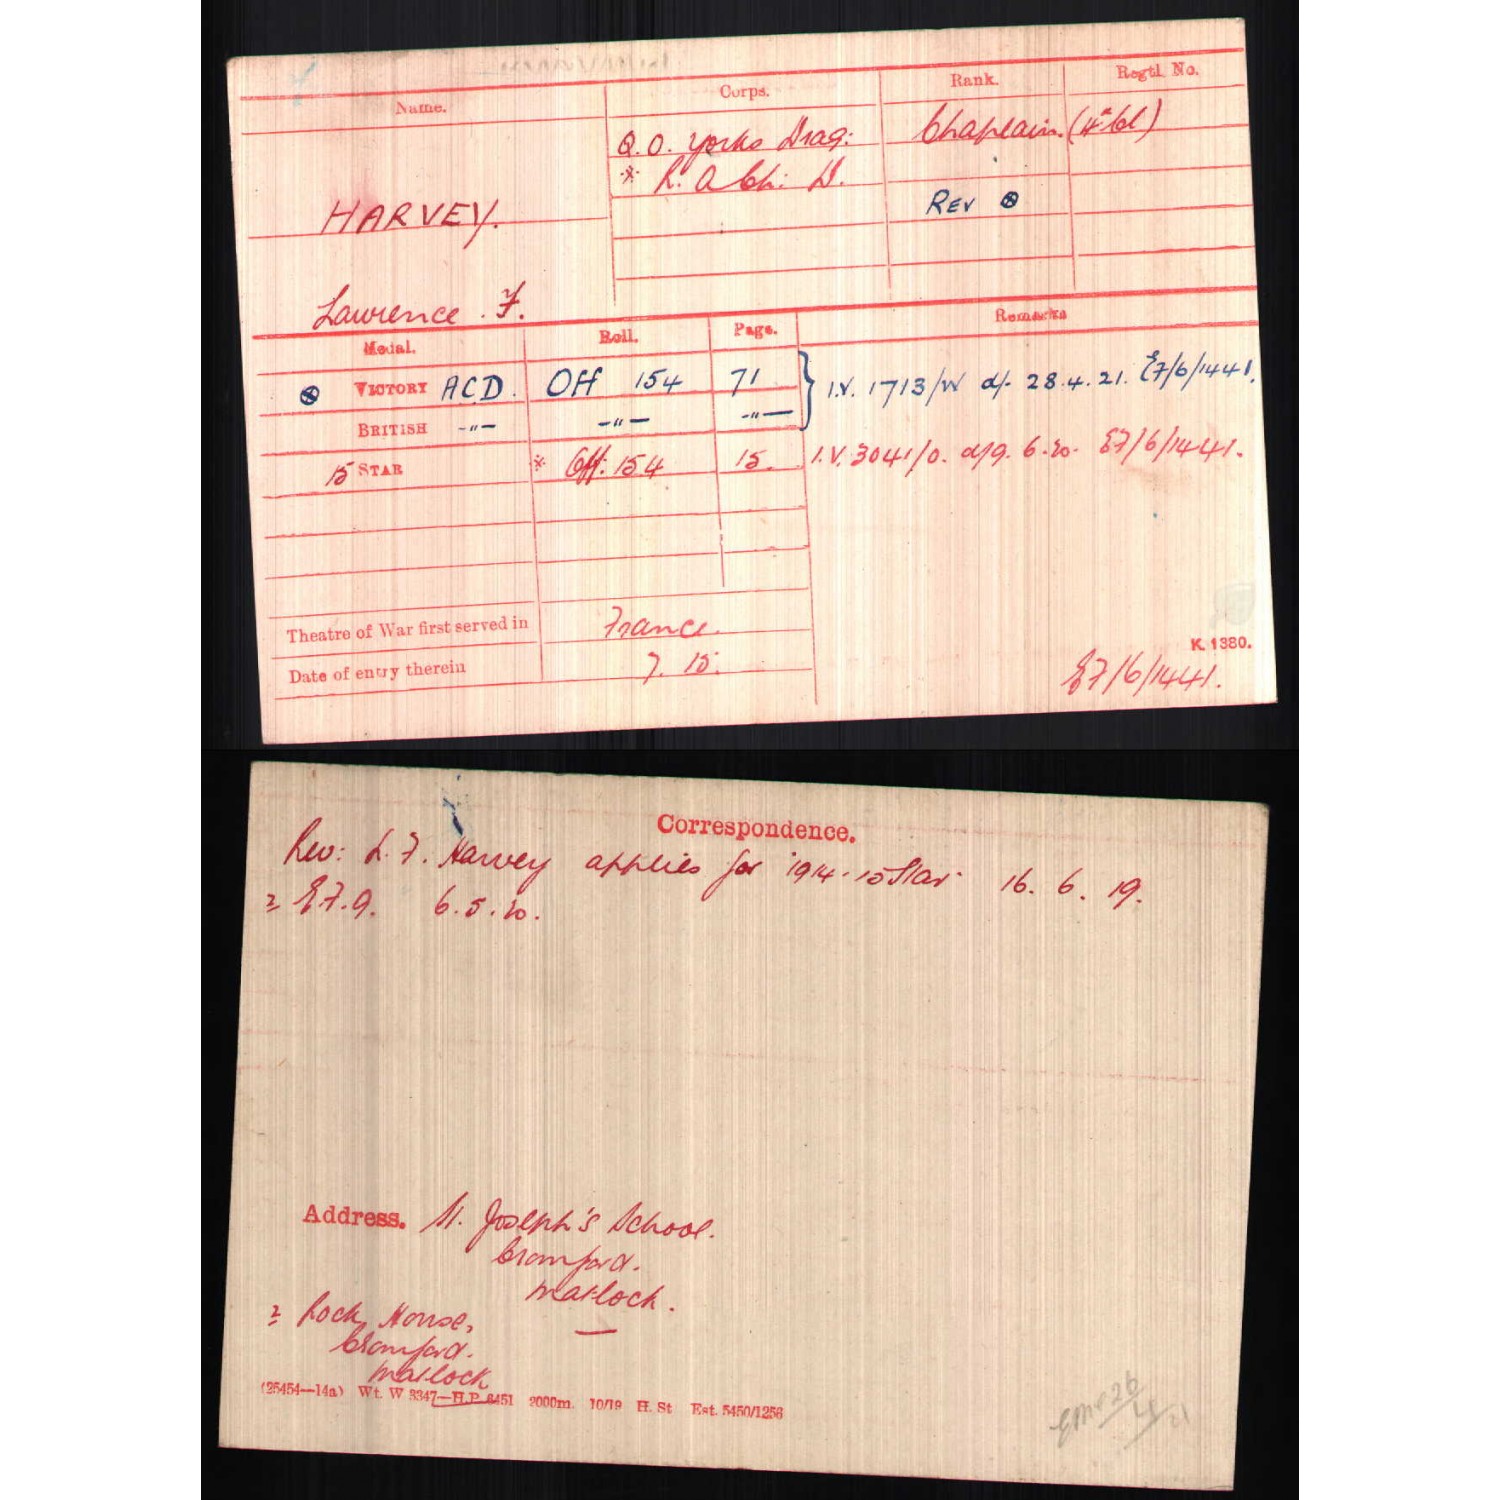 Name.
Corps.
Rank.
Regtl. No.
HARVEY.
Lawrence F.
Q.O. Yorks Drag:
Chaplain. (4th Cl)
* R. A Ch: D.
Rev ⊗
Medal.
Roll.
Page.
Remarks
⊗ VICTORY ACD. Off 154 71 } I.V. 1713/W d/- 28.4.21. E7/6/1441.
BRITISH -"- -"- -"-
15 STAR * Off: 154 15. I.V. 3041/O. d/9. 6.20. E7/6/1441.
Theatre of War first served in France.
Date of entry therein 7. 15.
K. 1380.
E7/6/1441.
Correspondence.
Rev: L. F. Harvey applies for 1914-15 Star 16. 6. 19.
2 E.F.9. 6.5.20.
Address. St. Joseph's School.
Cromford.
Matlock.
2 Rock House,
Cromford.
Matlock
(25454—14a) Wt. W 3347—H.P. 6451 2000m. 10/19 H. St Est. 5450/1256